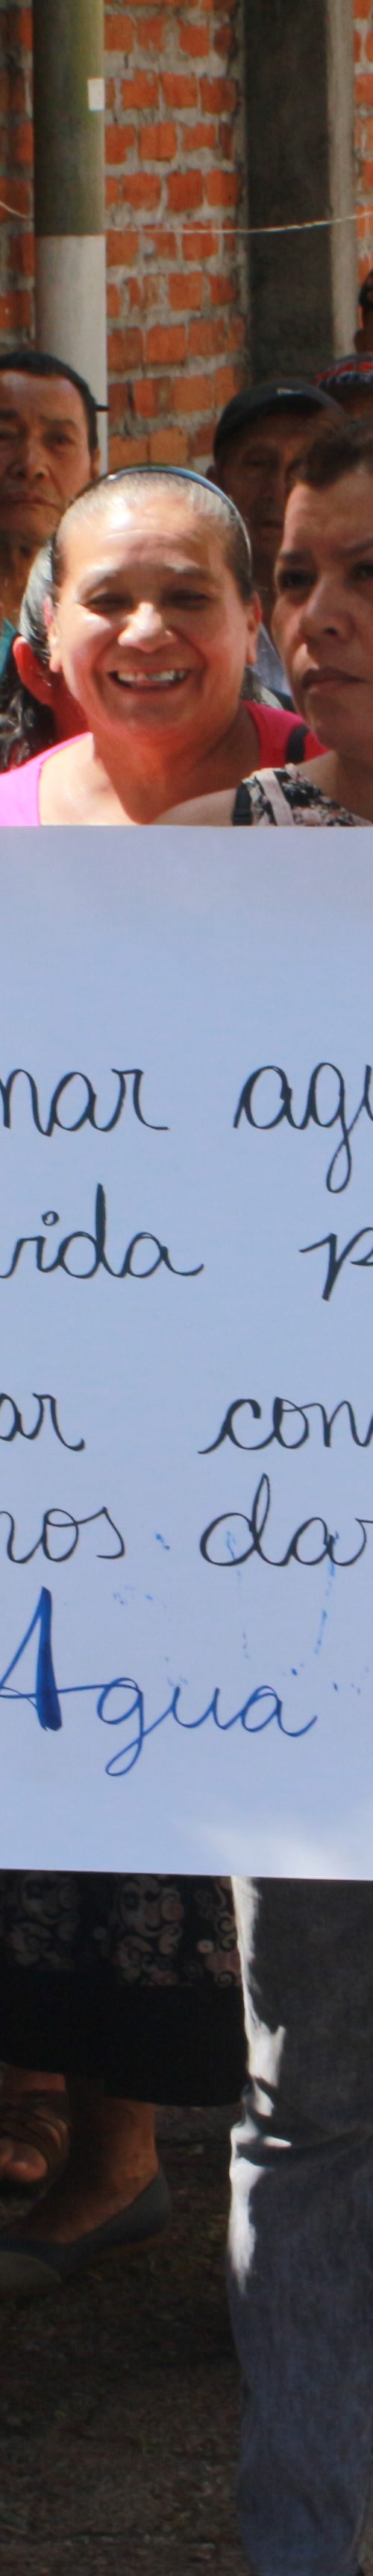 nar agu
vida p
ar con
nos dar
Agua